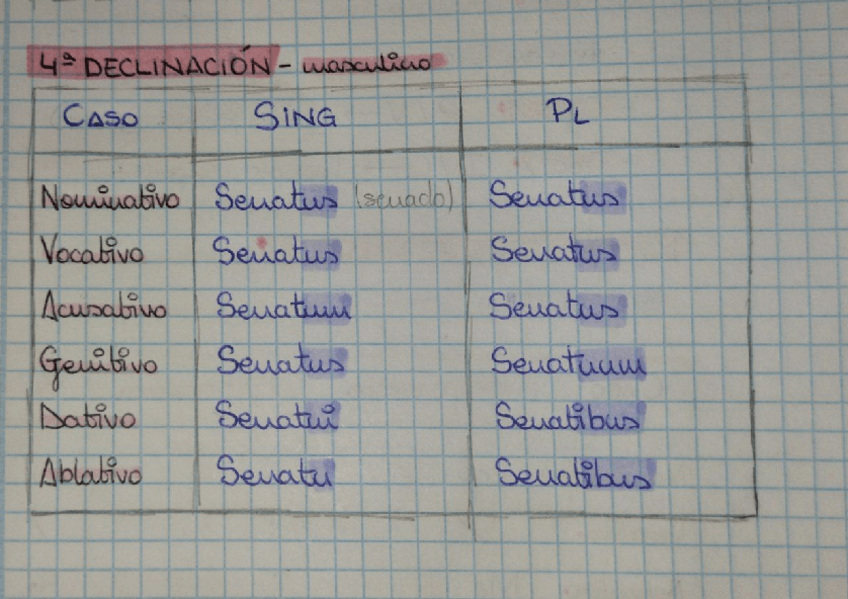 4ª DECLINACIÓN - masculino
CASO SING PL
Nominativo Senatus (senado) Senatus
Vocativo Senatus Senatus
Acusativo Senatum Senatus
Genitivo Senatus Senatuum
Dativo Senatui Senatibus
Ablativo Senatu Senatibus